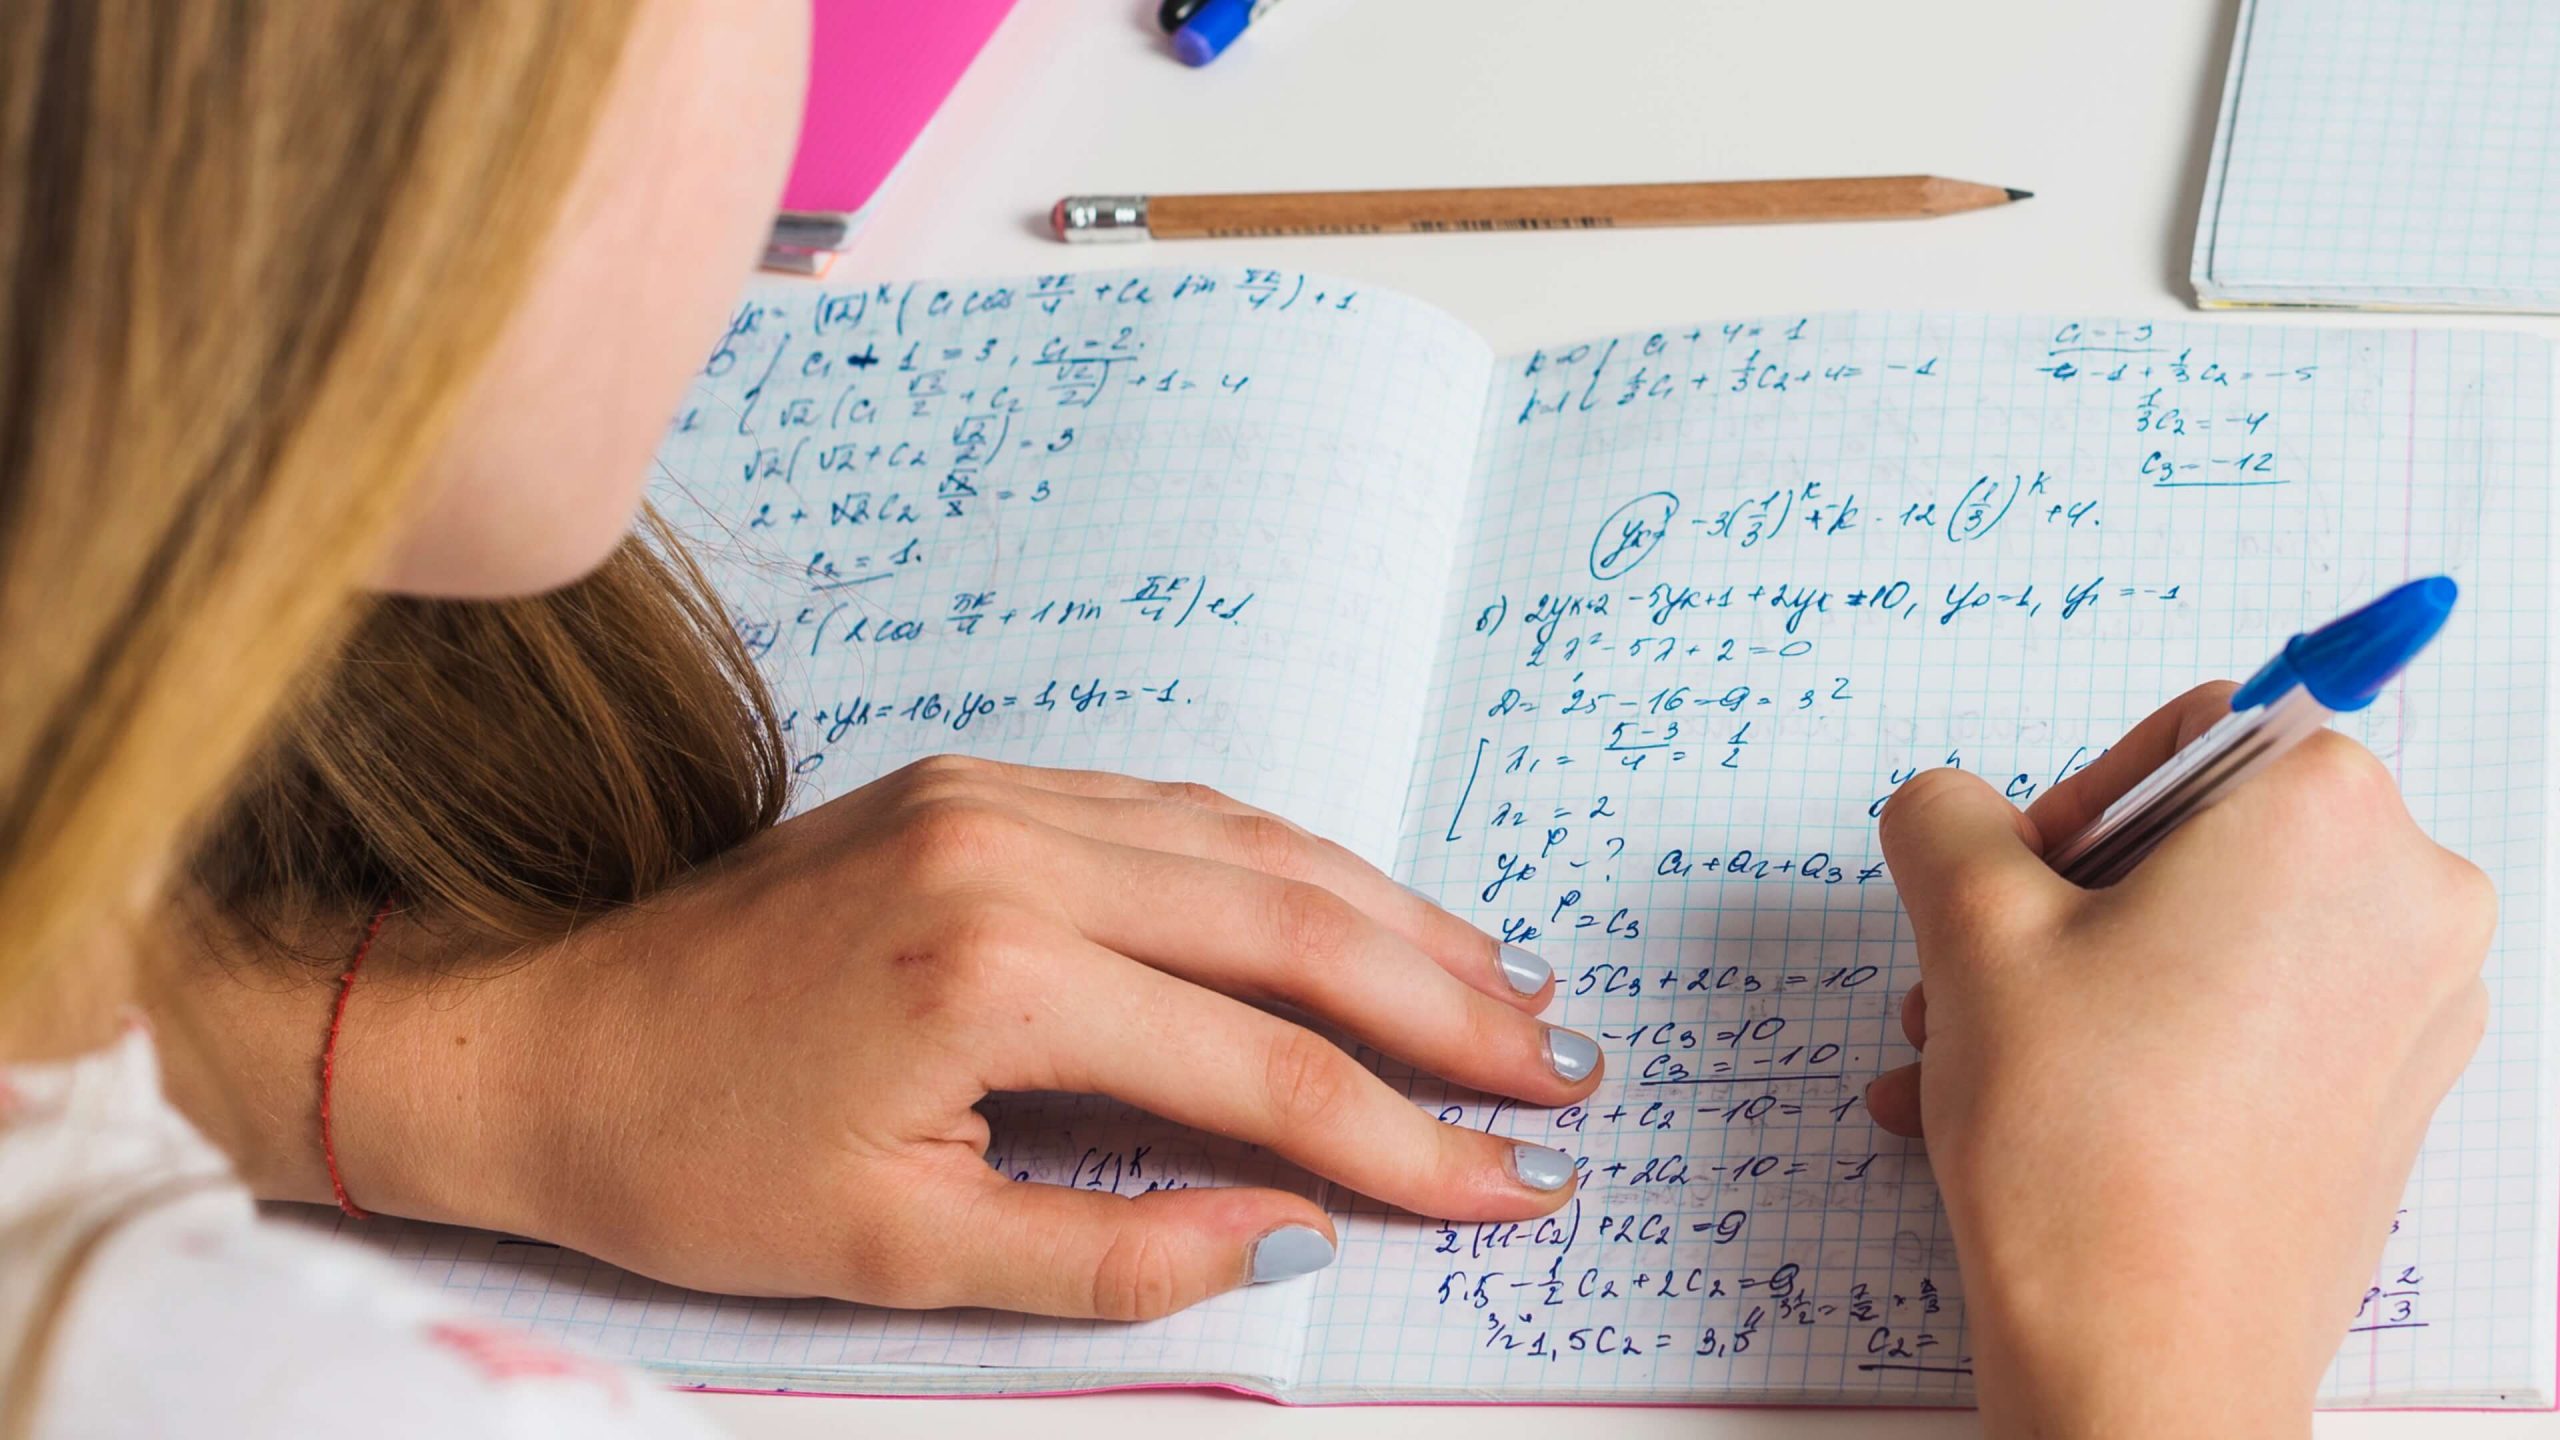 yk = (√2)^k ( c1 cos πk/4 + c2 sin πk/4 ) + 1.
0 { c1 + 1 = 3, c1 = 2.
1 { √2 ( c1 √2/2 + c2 √2/2 ) + 1 = 4
√2 ( √2 + c2 √2/2 ) = 3
2 + √2 c2 √2/2 = 3
c2 = 1.
(√2)^k ( 2 cos πk/4 + 1 sin πk/4 ) + 1.
1 + yk = 16, y0 = 1, y1 = -1.
0
(1)^k
k=0 { c1 + 4 = 1
k=1 { 1/3 c1 + 1/3 c2 + 4 = -1
c1 = -3
-1 + 1/3 c2 = -5
1/3 c2 = -4
c3 = -12
yk = -3(1/3)^k + -k · 12 (1/3)^k + 4.
б) 2yk+2 - 5yk+1 + 2yk = 10, y0 = 1, y1 = -1
2λ² - 5λ + 2 = 0
D = 25 - 16 = 9 = 3²
[ λ1 = 5-3/4 = 1/2
λ2 = 2
y c1 (
yk^p - ? a1 + a2 + a3 ≠
yk^p = c3
- 5c3 + 2c3 = 10
-1c3 = 10
c3 = -10.
c1 + c2 - 10 = 1
c1 + 2c2 - 10 = -1
1/2 (11-c2) + 2c2 = 9
5,5 - 1/2 c2 + 2c2 = 9
3/2 1,5c2 = 3,5
3 1/2 = 7/2
c2 =
2/3